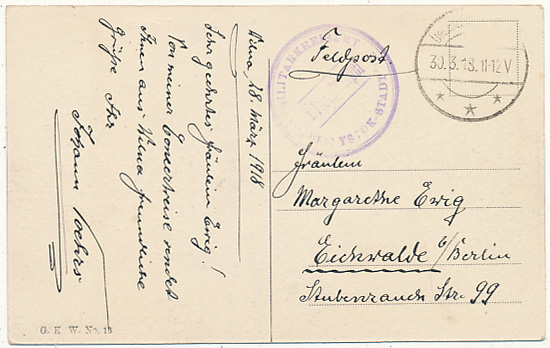 Wilna, 28. März 1918
Sehr geehrtes Fräulein Ewig!
Von meiner Konzertreise sendet
Ihnen aus Wilna freundliche
Grüße Ihr
Johann
G. K. W. No. 13
Feldpost
MILITÄRKREISAMT
BIALYSTOK-STADT
30.3.18.11-12V
Fräulein
Margarethe Ewig
Eichwalde b/Berlin
Stubenrauch Str. 99